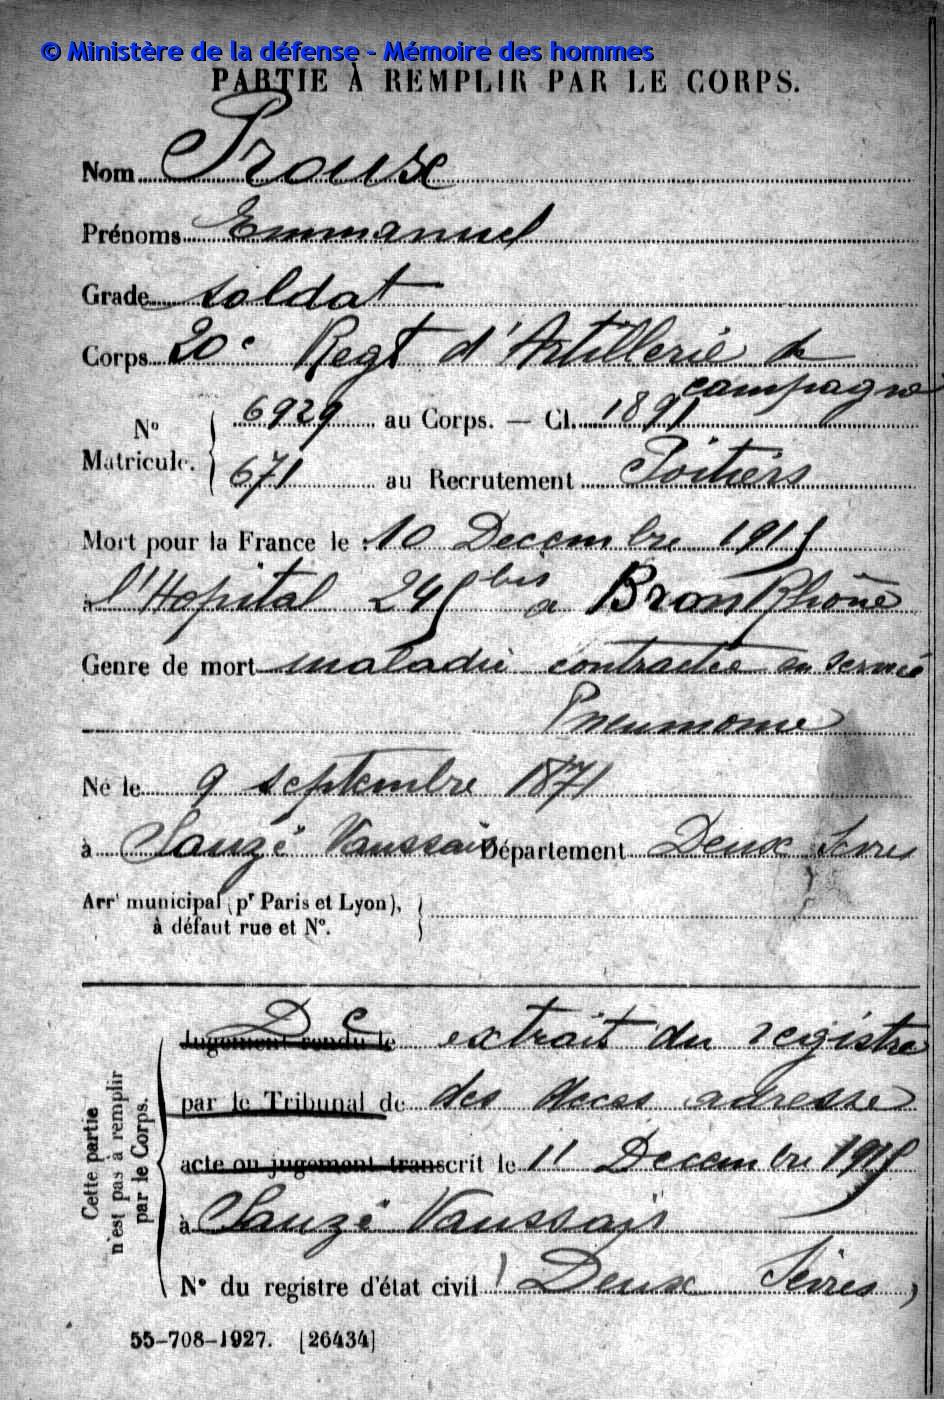 © Ministère de la défense - Mémoire des hommes
PARTIE À REMPLIR PAR LE CORPS.
Nom Proux
Prénoms Emmanuel
Grade soldat
Corps 20e Regt d'Artillerie de
campagne
N° Matricule. 6929 au Corps. — Cl. 1891
671 au Recrutement Poitiers
Mort pour la France le : 10 Decembre 1915
à l'Hopital 245 bis a Bron Rhône
Genre de mort maladie contractée en service
Pneumonie
Né le 9 septembre 1871
à Sauzé Vaussais Département Deux Sevres
Arrt municipal (pr Paris et Lyon),
à défaut rue et N°.
Cette partie
n'est pas à remplir
par le Corps.
Jugement rendu le Dc extrait du registre
par le Tribunal de des deces adresse
acte ou jugement transcrit le 11 Decembre 1915
à Sauzé Vaussais
N° du registre d'état civil (Deux Sèvres)
55-708-1927. [26434]